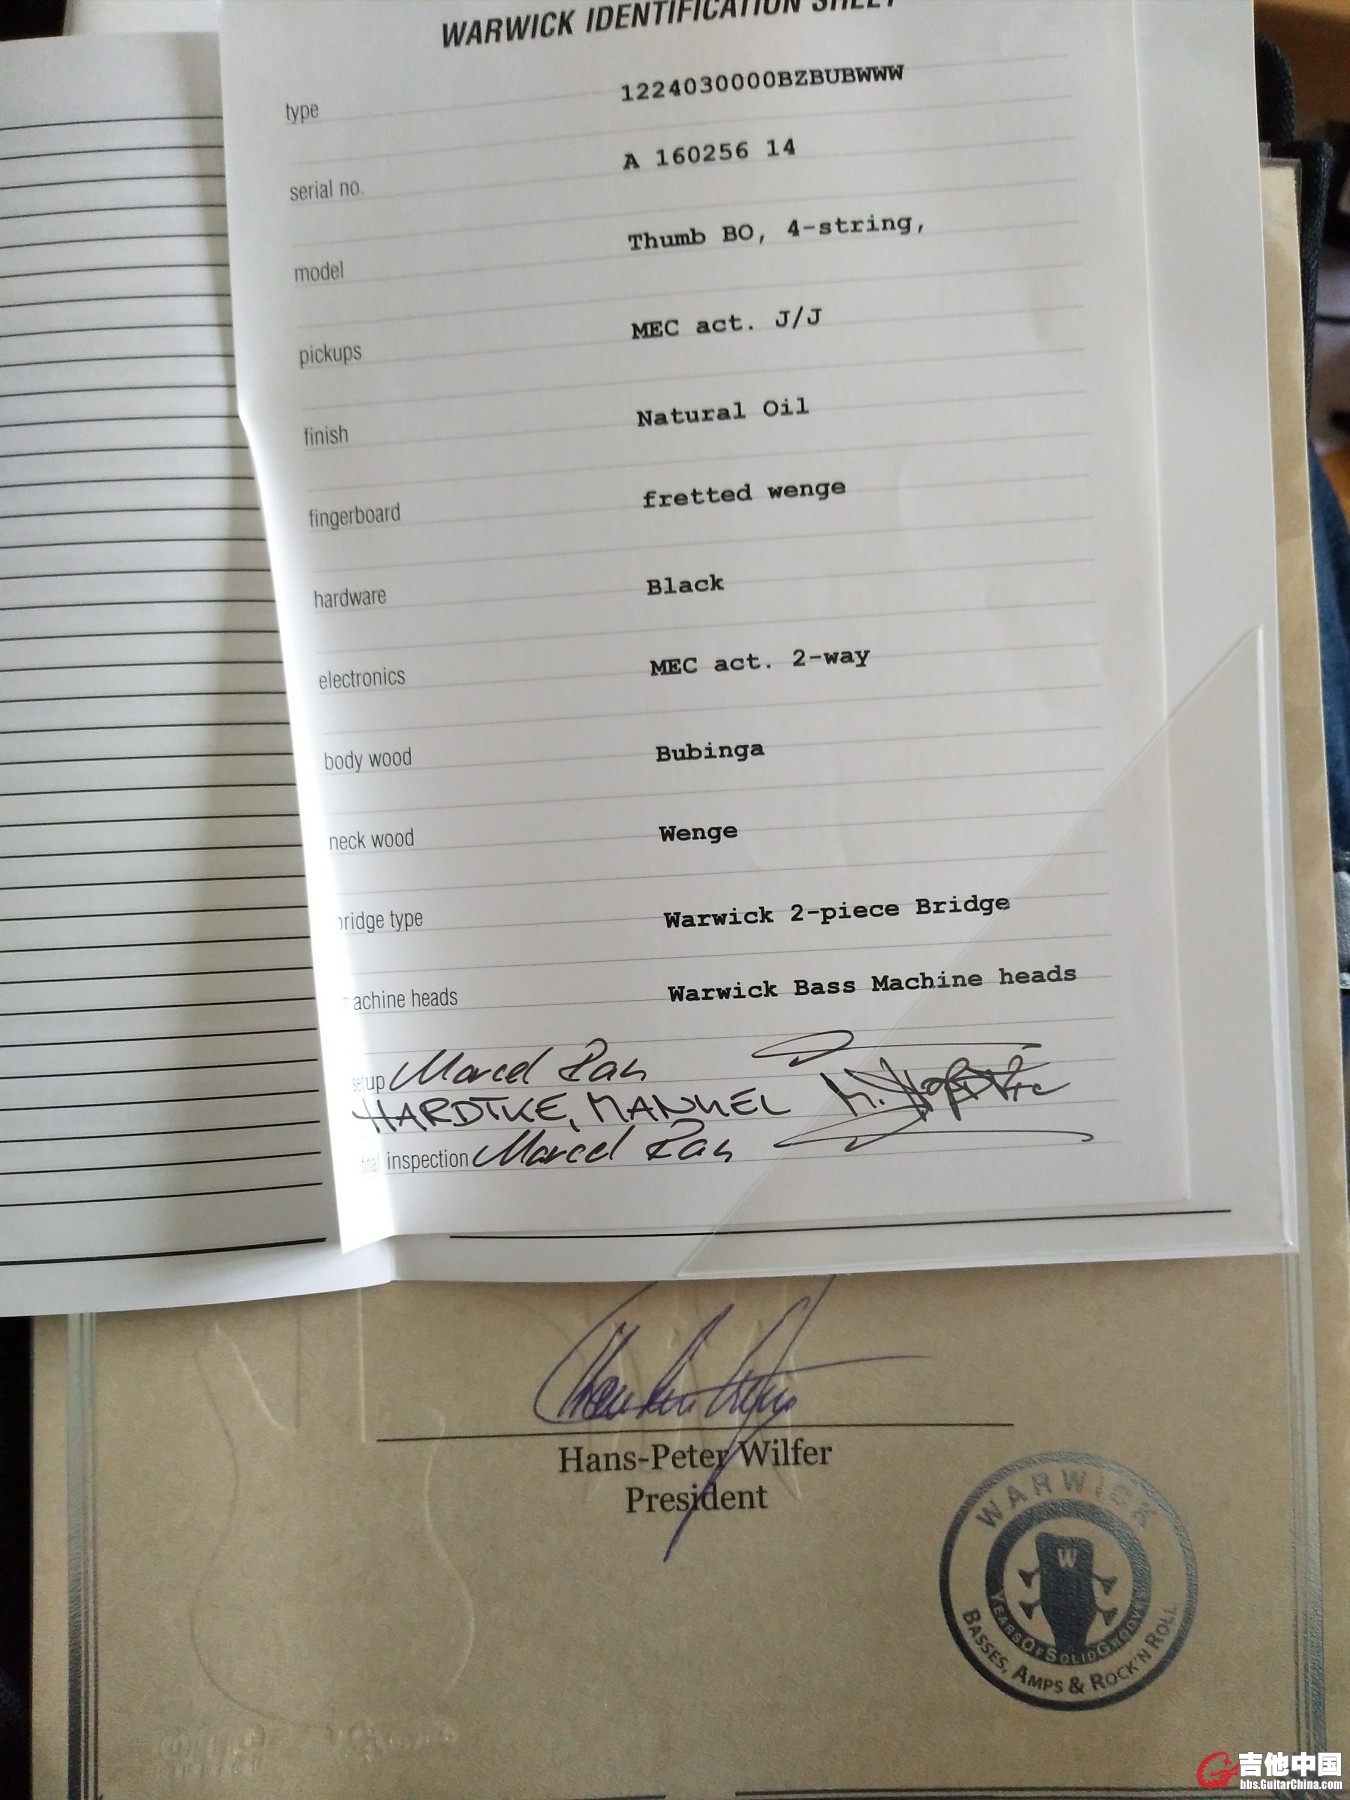 WARWICK IDENTIFICATION SHEET
type 1224030000BZBUBWWW
serial no. A 160256 14
model Thumb BO, 4-string,
pickups MEC act. J/J
finish Natural Oil
fingerboard fretted wenge
hardware Black
electronics MEC act. 2-way
body wood Bubinga
neck wood Wenge
bridge type Warwick 2-piece Bridge
machine heads Warwick Bass Machine heads
setup Marcel Rah
HARDTKE, MANUEL
final inspection Marcel Rah
Hans-Peter Wilfer
President
WARWICK
W
YEARS OF SOLID GROOVE
BASSES, AMPS & ROCK'N ROLL
吉他中国
bbs.GuitarChina.com